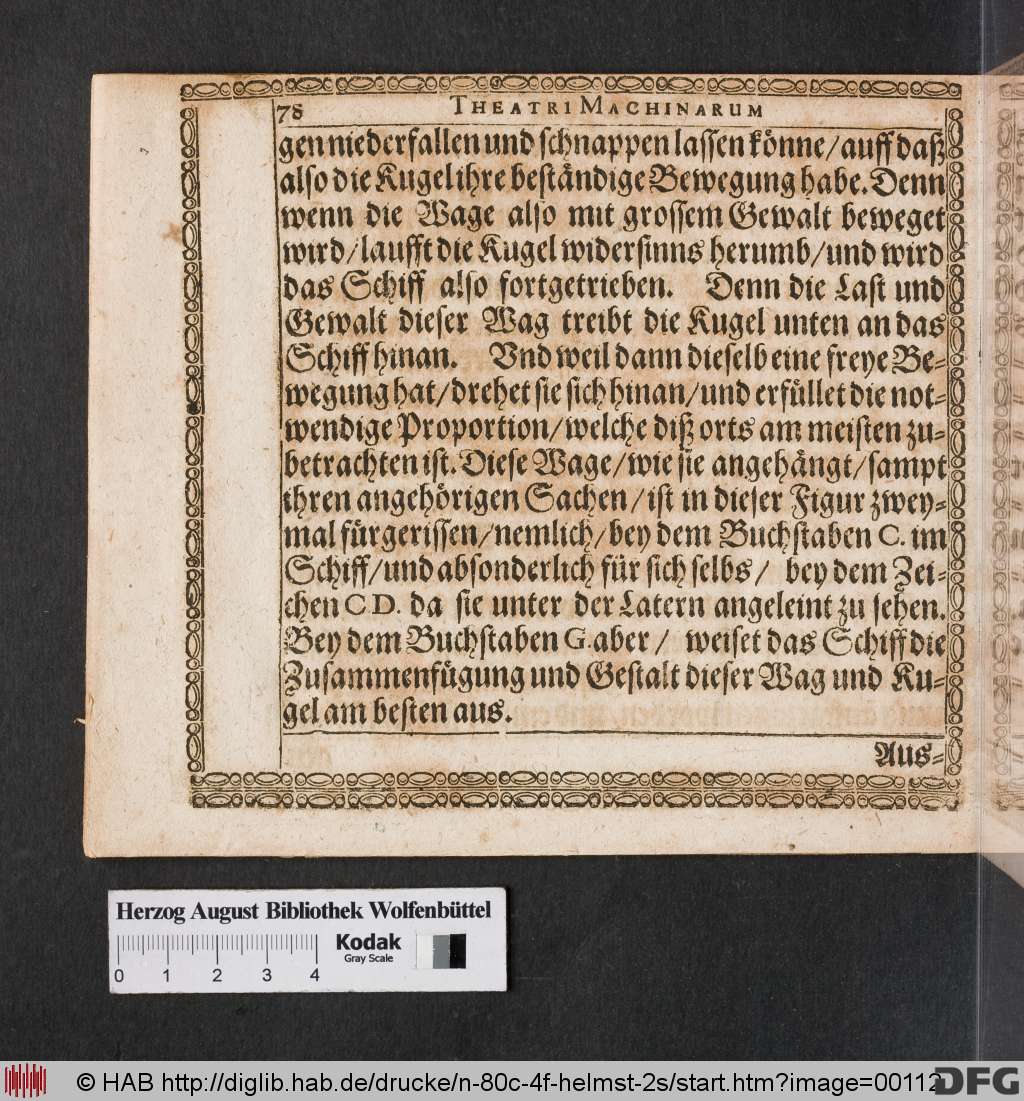 78 THEATRI MACHINARUM
gen niederfallen und schnappen lassen könne/auff daß
also die Kugel ihre beständige Bewegung habe. Denn
wenn die Wage also mit grossem Gewalt beweget
wird/laufft die Kugel widersinns herumb/und wird
das Schiff also fortgetrieben. Denn die Last und
Gewalt dieser Wag treibt die Kugel unten an das
Schiff hinan. Vnd weil dann dieselb eine freye Be-
wegung hat/drehet sie sich hinan/und erfüllet die not-
wendige Proportion/welche diß orts am meisten zu-
betrachten ist. Diese Wage/wie sie angehängt/sampt
ihren angehörigen Sachen/ist in dieser Figur zwey-
mal fürgerissen/nemlich/bey dem Buchstaben C. im
Schiff/und absonderlich für sich selbs/ bey dem Zei-
chen C D. da sie unter der Latern angeleint zu sehen.
Bey dem Buchstaben G. aber/ weiset das Schiff die
Zusammenfügung und Gestalt dieser Wag und Ku-
gel am besten aus.
Aus-
Herzog August Bibliothek Wolfenbüttel
Kodak
Gray Scale
0 1 2 3 4
© HAB http://diglib.hab.de/drucke/n-80c-4f-helmst-2s/start.htm?image=00112
DFG